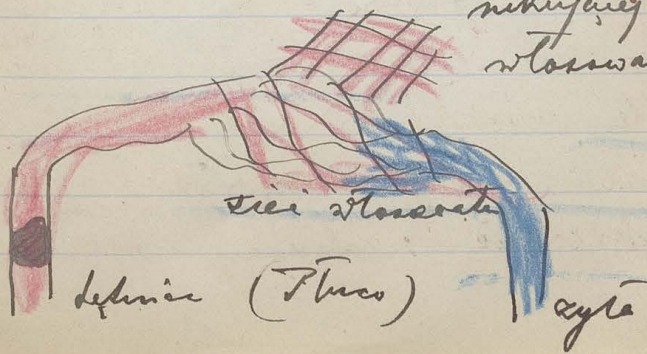 włosowa
sieć włosowata
tętnica (Płuco) żyła